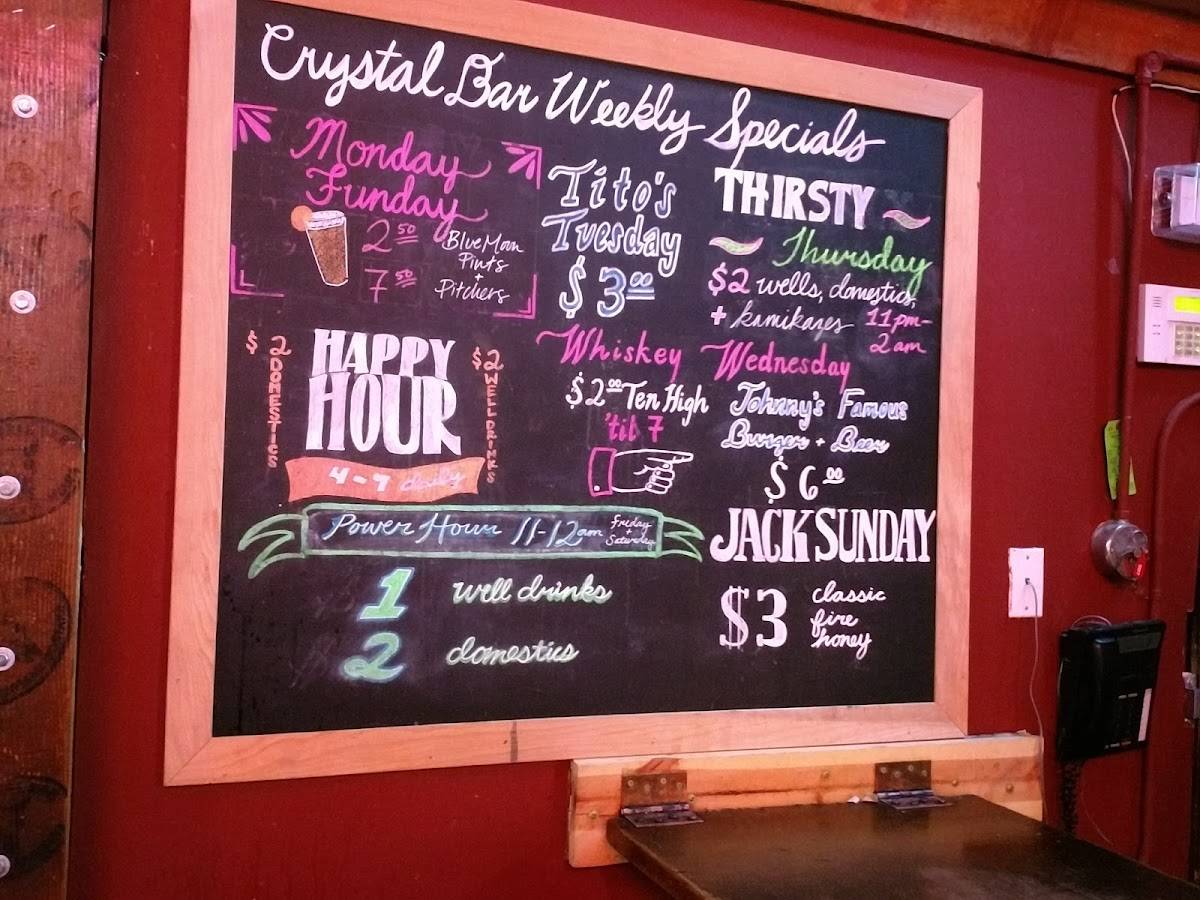 Crystal Bar Weekly Specials
Monday
Funday
2 50
7 50
Blue Moon
Pints
+
Pitchers
Tito's
Tuesday
$3 00
THIRSTY
Thursday
$2 wells, domestics,
+ kamikazes
11pm-
2am
$2 DOMESTICS
HAPPY
HOUR
$2 WELL DRINKS
4-7 daily
Whiskey Wednesday
$2 00 Ten High
'til 7
Johnny's Famous
Burger + Beer
$6 00
Power Hour 11-12am
Friday
+
Saturday
1 well drinks
2 domestics
JACK SUNDAY
$3
classic
fire
honey